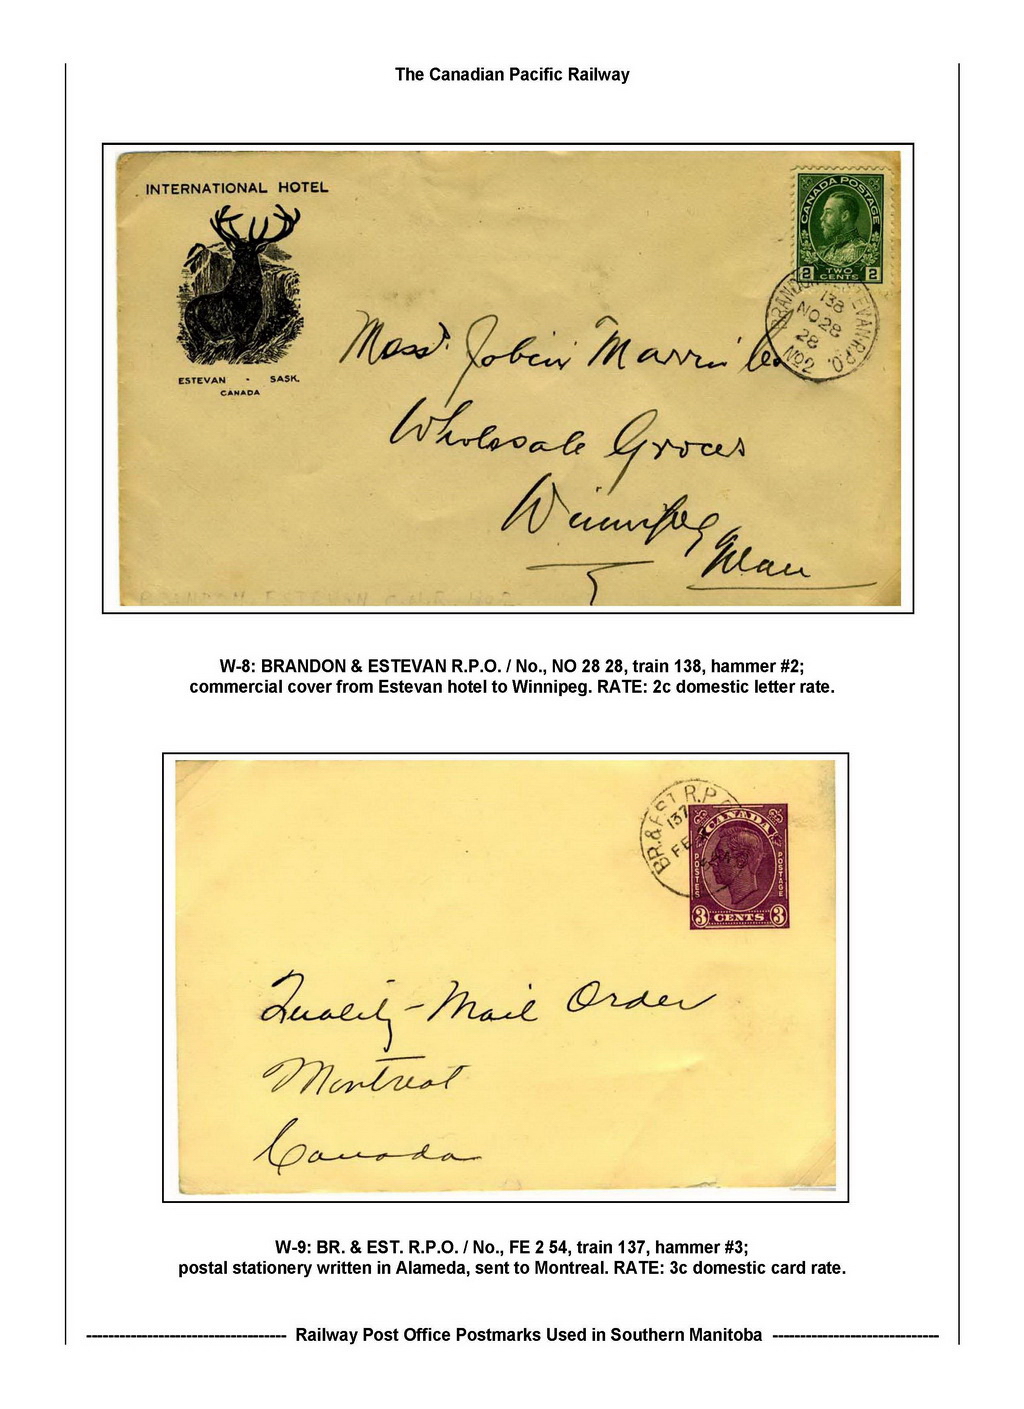 The Canadian Pacific Railway
INTERNATIONAL HOTEL
ESTEVAN - SASK.
CANADA
CANADA POSTAGE
2 TWO CENTS 2
138
NO 28
28
No2
Mess. Jobin Marrin Co
Wholesale Grocers
Winnipeg
Man
W-8: BRANDON & ESTEVAN R.P.O. / No., NO 28 28, train 138, hammer #2;
commercial cover from Estevan hotel to Winnipeg. RATE: 2c domestic letter rate.
BR. & EST R.P.
137
FE
CANADA
POSTES POSTAGE
3 CENTS 3
Quality - Mail Order
Montreal
Canada
W-9: BR. & EST. R.P.O. / No., FE 2 54, train 137, hammer #3;
postal stationery written in Alameda, sent to Montreal. RATE: 3c domestic card rate.
------------------------------------ Railway Post Office Postmarks Used in Southern Manitoba ------------------------------